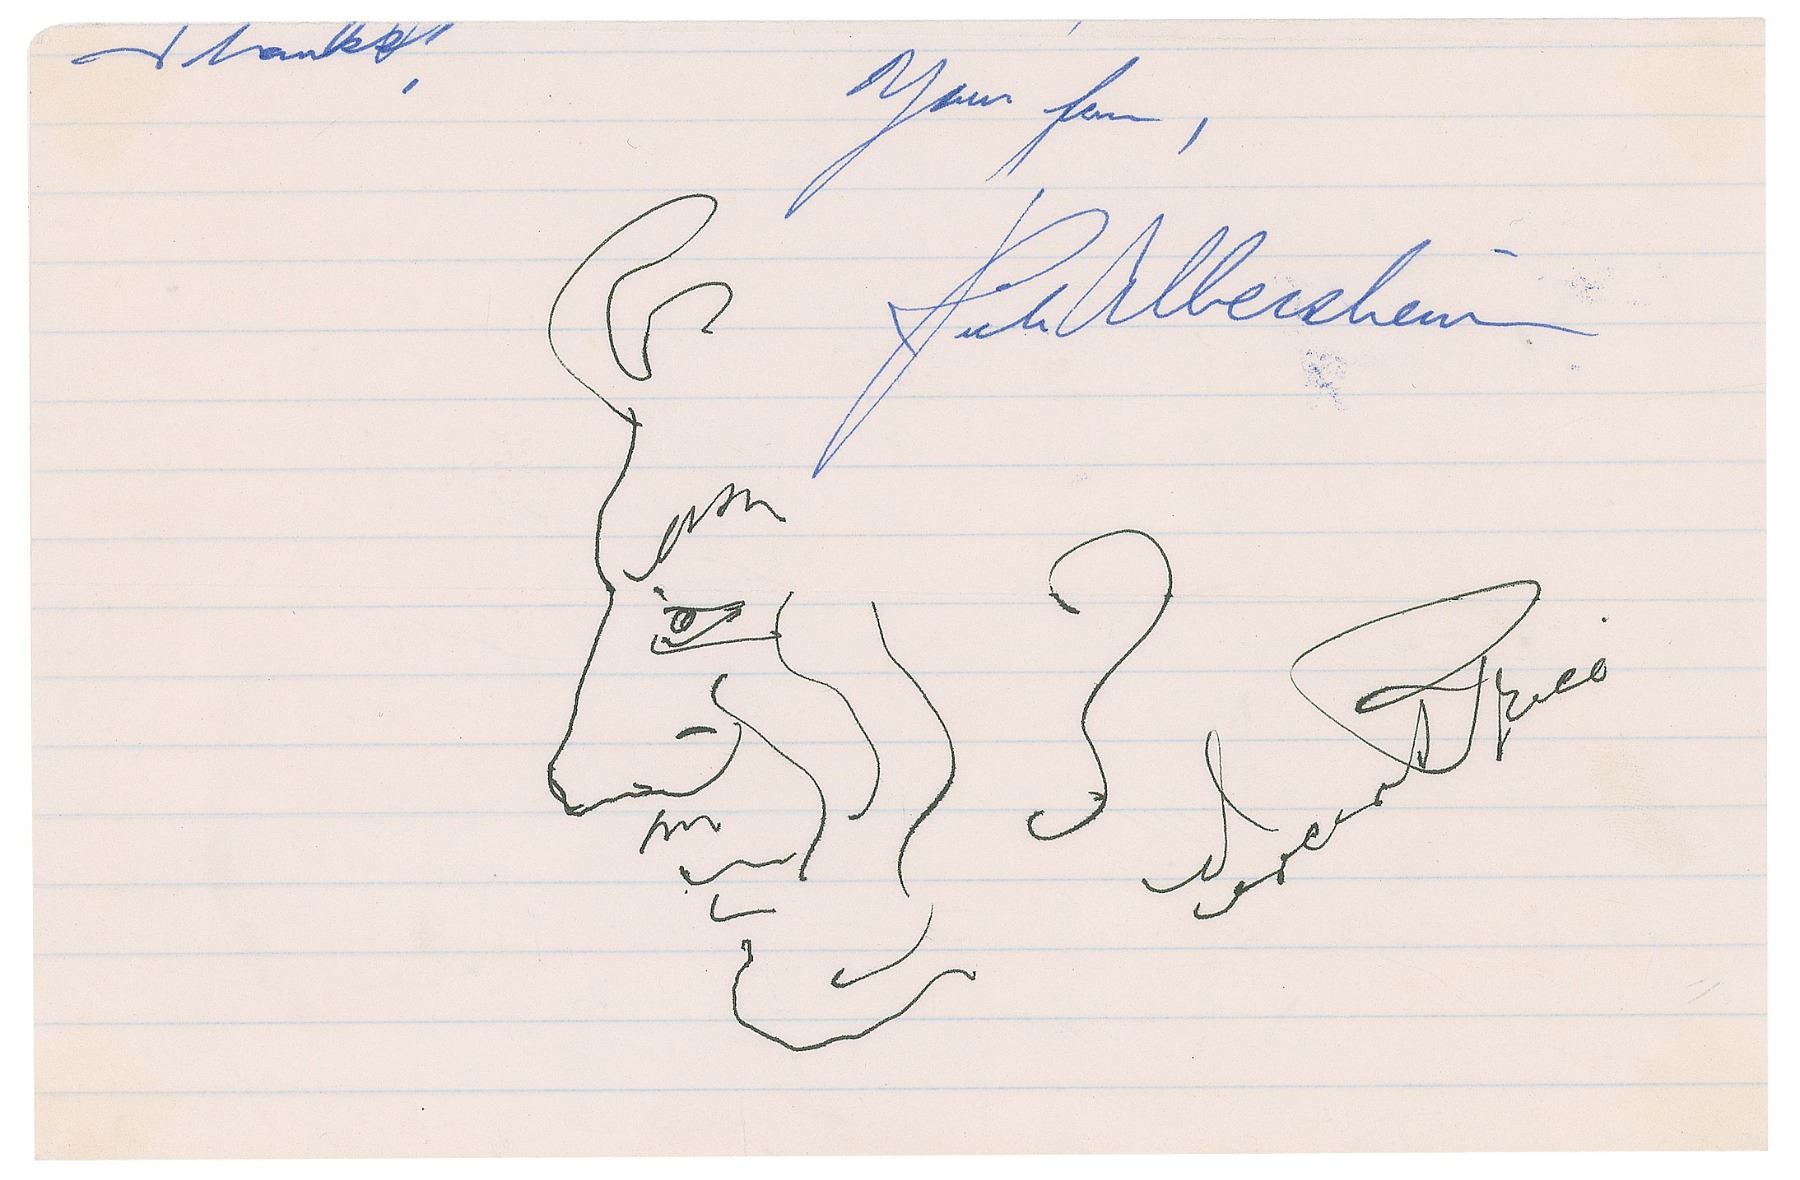 Thanks!
Your fan,
Rick Albersheim
Vincent Price